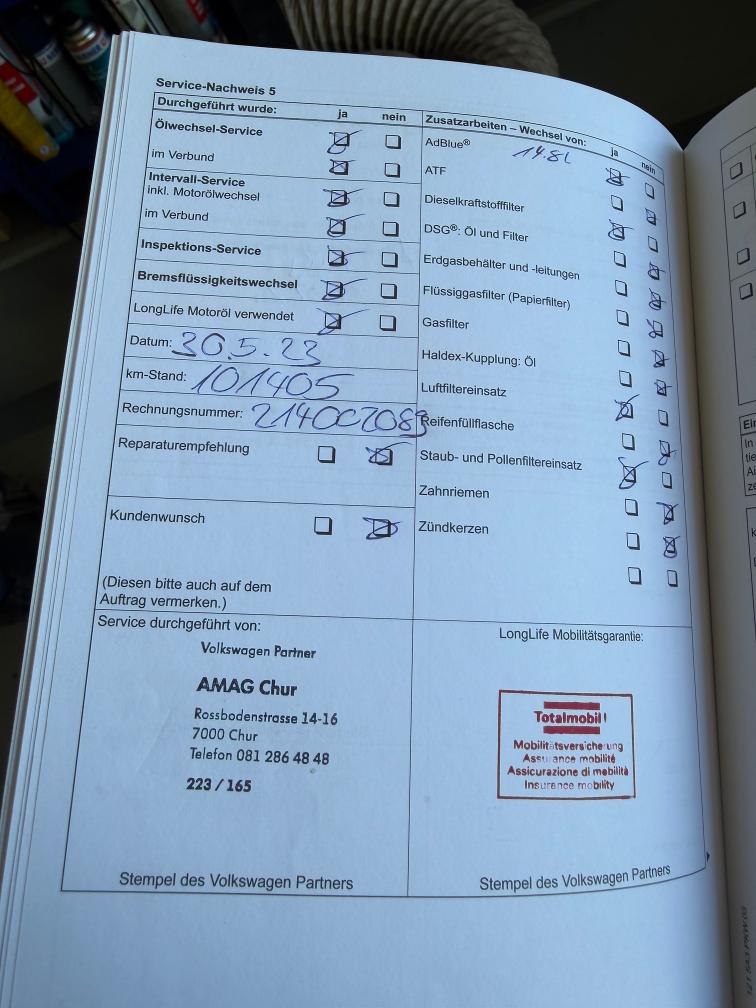 Service-Nachweis 5
Durchgeführt wurde: ja nein
Ölwechsel-Service
im Verbund
Intervall-Service
inkl. Motorölwechsel
im Verbund
Inspektions-Service
Bremsflüssigkeitswechsel
LongLife Motoröl verwendet
Datum: 30.5.23
km-Stand: 101405
Rechnungsnummer: 214002089
Reparaturempfehlung
Kundenwunsch
(Diesen bitte auch auf dem
Auftrag vermerken.)
Zusatzarbeiten – Wechsel von: ja nein
AdBlue® 14.8L
ATF
Dieselkraftstofffilter
DSG®: Öl und Filter
Erdgasbehälter und -leitungen
Flüssiggasfilter (Papierfilter)
Gasfilter
Haldex-Kupplung: Öl
Luftfiltereinsatz
Reifenfüllflasche
Staub- und Pollenfiltereinsatz
Zahnriemen
Zündkerzen
Service durchgeführt von:
Volkswagen Partner
AMAG Chur
Rossbodenstrasse 14-16
7000 Chur
Telefon 081 286 48 48
223 / 165
Stempel des Volkswagen Partners
LongLife Mobilitätsgarantie:
Totalmobil!
Mobilitätsversicherung
Assurance mobilité
Assicurazione di mobilità
Insurance mobility
Stempel des Volkswagen Partners